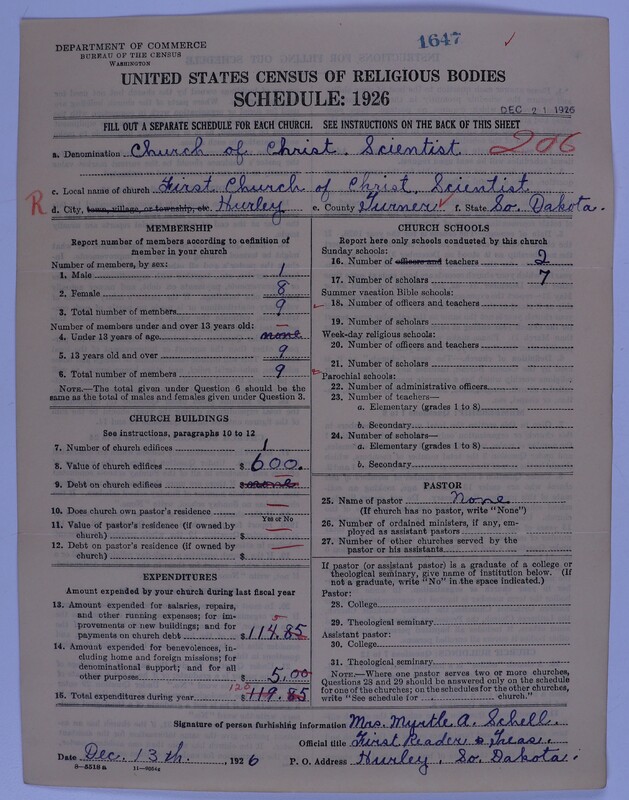 1647
DEPARTMENT OF COMMERCE
BUREAU OF THE CENSUS
WASHINGTON
UNITED STATES CENSUS OF RELIGIOUS BODIES
SCHEDULE: 1926
DEC 21 1926
FILL OUT A SEPARATE SCHEDULE FOR EACH CHURCH. SEE INSTRUCTIONS ON THE BACK OF THIS SHEET
206
a. Denomination Church of Christ. Scientist
c. Local name of church First Church of Christ, Scientist
R d. City, town, village, or township, etc. Hurley e. County Turner f. State So. Dakota.
MEMBERSHIP
Report number of members according to definition of
member in your church
Number of members, by sex:
1. Male 1
2. Female 8
3. Total number of members 9
Number of members under and over 13 years old:
4. Under 13 years of age none
5. 13 years old and over 9
6. Total number of members 9
NOTE.—The total given under Question 6 should be the
same as the total of males and females given under Question 3.
CHURCH BUILDINGS
See instructions, paragraphs 10 to 12
7. Number of church edifices 1
8. Value of church edifices $600.
9. Debt on church edifices $none
10. Does church own pastor's residence
Yes or No
11. Value of pastor's residence (if owned by
church) $
12. Debt on pastor's residence (if owned by
church) $
EXPENDITURES
Amount expended by your church during last fiscal year
13. Amount expended for salaries, repairs,
and other running expenses; for im-
provements or new buildings; and for
payments on church debt $114.85
5
14. Amount expended for benevolences, in-
cluding home and foreign missions; for
denominational support; and for all
other purposes $5.00
15. Total expenditures during year $119.85
120
CHURCH SCHOOLS
Report here only schools conducted by this church
Sunday schools:
16. Number of officers and teachers 2
17. Number of scholars 7
Summer vacation Bible schools:
18. Number of officers and teachers
19. Number of scholars
Week-day religious schools:
20. Number of officers and teachers
21. Number of scholars
Parochial schools:
22. Number of administrative officers
23. Number of teachers—
a. Elementary (grades 1 to 8)
b. Secondary
24. Number of scholars—
a. Elementary (grades 1 to 8)
b. Secondary
PASTOR
25. Name of pastor None
(If church has no pastor, write "None")
26. Number of ordained ministers, if any, em-
ployed as assistant pastors
27. Number of other churches served by the
pastor or his assistants
If pastor (or assistant pastor) is a graduate of a college or
theological seminary, give name of institution below. (If
not a graduate, write "No" in the space indicated.)
Pastor:
28. College
29. Theological seminary
Assistant pastor:
30. College
31. Theological seminary
NOTE.—Where one pastor serves two or more churches,
Questions 28 and 29 should be answered only on the schedule
for one of the churches; on the schedules for the other churches,
write "See schedule for church."
Signature of person furnishing information Mrs. Myrtle A. Schell
Official title First Reader & Treas.
Date Dec. 13th, 1926 P. O. Address Hurley, So. Dakota.